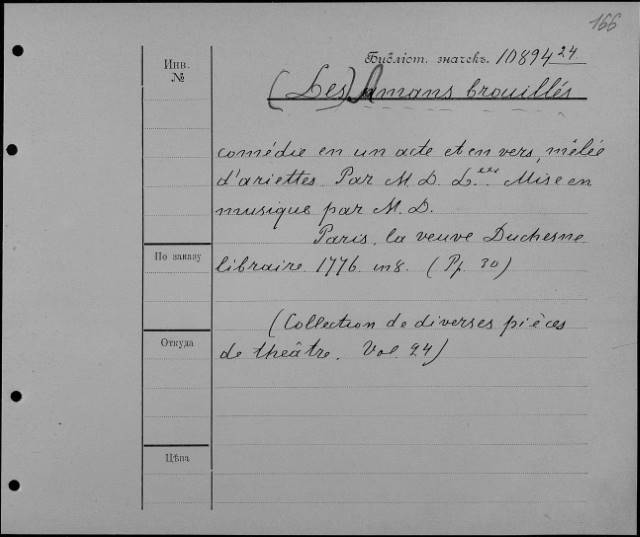 166
Инв. №
Библіот. значекъ. 10894 24
(Les) Amans brouillés
comédie en un acte et en vers, mêlée
d'ariettes. Par M. D. L*** Mise en
musique par M. D.
Paris, la veuve Duchesne
По заказу
libraire 1776. in 8. (Pp. 30)
(Collection de diverses pièces
Откуда
de théâtre. Vol 24)
Цѣна